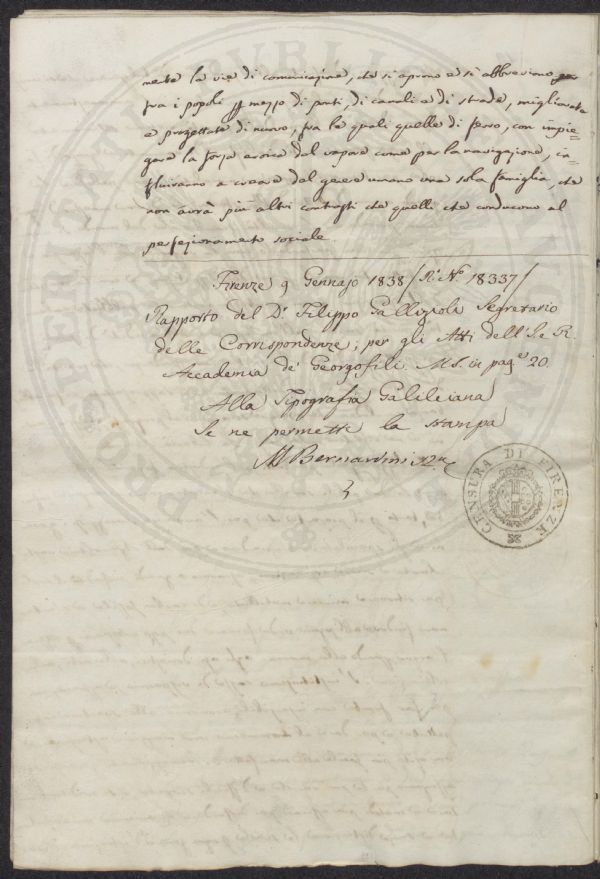 mente la vie di comunicazione, che si aprono e si abbreviano
fra i popoli p mezzo di ponti, di canali e di strade, migliorate
e progettate di nuovo, fra le quali quelle di ferro, con impie=
gare la forza eroica del vapore come per la navigazione, in=
fluiranno a creare del genere umano una sola famiglia, che
non avrà più altri contrasti che quelli che conducono al
perfezionamento sociale
Firenze 9 Gennajo 1838 / R.e N.o 18337 /
Rapporto del D.r Filippo Gallizioli Segretario
delle Corrispondenze; per gli Atti dell' I. e R.
Accademia de' Georgofili. MS. in pag.e 20.
Alla Tipografia Galileiana
Se ne permette la stampa
M Bernardini
CENSURA DI FIRENZE